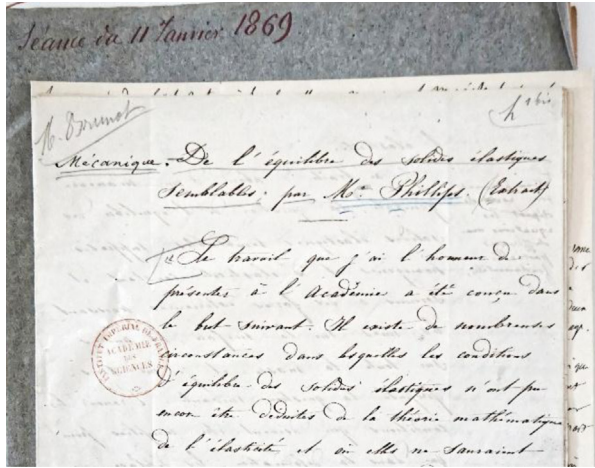 Séance du 11 Janvier 1869.
Mécanique. – De l'équilibre des solides élastiques
semblables. par Mr. Phillips. (Extrait)
"Le travail que j'ai l'honneur de
présenter à l'Académie a été conçu dans
le but suivant. Il existe de nombreuses
circonstances dans lesquelles les conditions
d'équilibre des solides élastiques n'ont pu
encore être déduites de la théorie mathématique
de l'élasticité et où elles ne sauraient
INSTITUT IMPÉRIAL DE FRANCE
ACADÉMIE
DES
SCIENCES